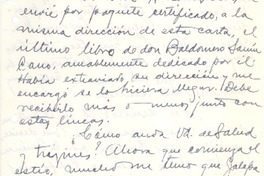 envié por paquete certificado, a la
misma dirección de esta carta, el
último libro de don Baldomero Sanín
Cano, amablemente dedicado por él.
Había extraviado su dirección y me
encargó se lo hiciera llegar. Debe
recibirlo más o menos junto con
estas líneas.
¿Cómo anda Ud. de salud
y trajines? Ahora que comienza el
estío, mucho me temo que